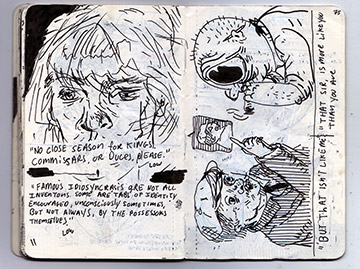 "NO CLOSE SEASON for KINGS,
COMMISSARS, OR DUCES, PLEASE."
LOW
"FAMOUS IDIOSYNCRASIES ARE NOT ALL
INVENTIONS. SOME ARE TABS OF IDENTITY
ENCOURAGED, UNCONSCIOUSLY SOMETIMES,
BUT NOT ALWAYS, BY THE POSSESSORS
THEMSELVES."
LOW
11
"BUT THAT ISN'T LIKE ME" "THAT SIR, IS MORE LIKE YOU
THAN YOU ARE